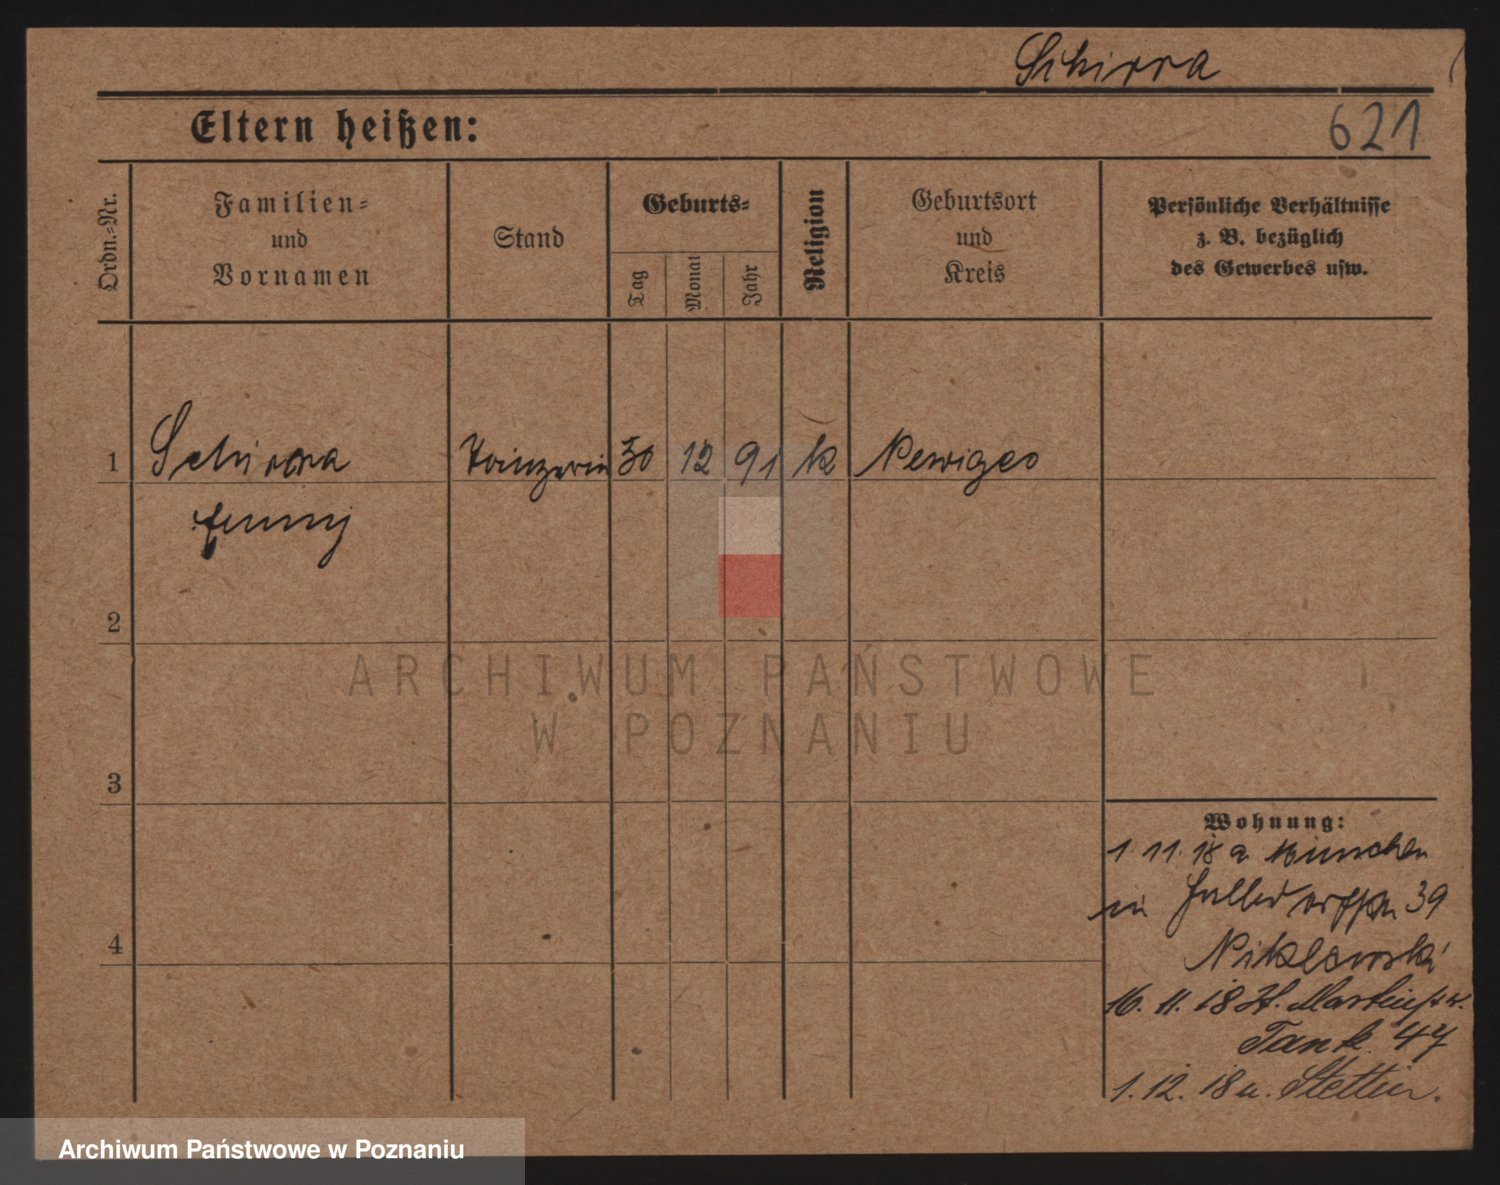 Schirra
621
Eltern heißen:
Ordn.-Nr.
Familien-
und
Vornamen
Stand
Geburts-
Tag
Monat
Jahr
Religion
Geburtsort
und
Kreis
Persönliche Verhältnisse
z. B. bezüglich
des Gewerbes usw.
1 Schirra Tänzerin 30 12 91 k
2
3
4
Wohnung:
1. 11. 18 a München
in 39
16. 11. 18 St. Martinstr.
47
1. 12. 18 u. Stettin.
ARCHIWUM PAŃSTWOWE
W POZNANIU
Archiwum Państwowe w Poznaniu